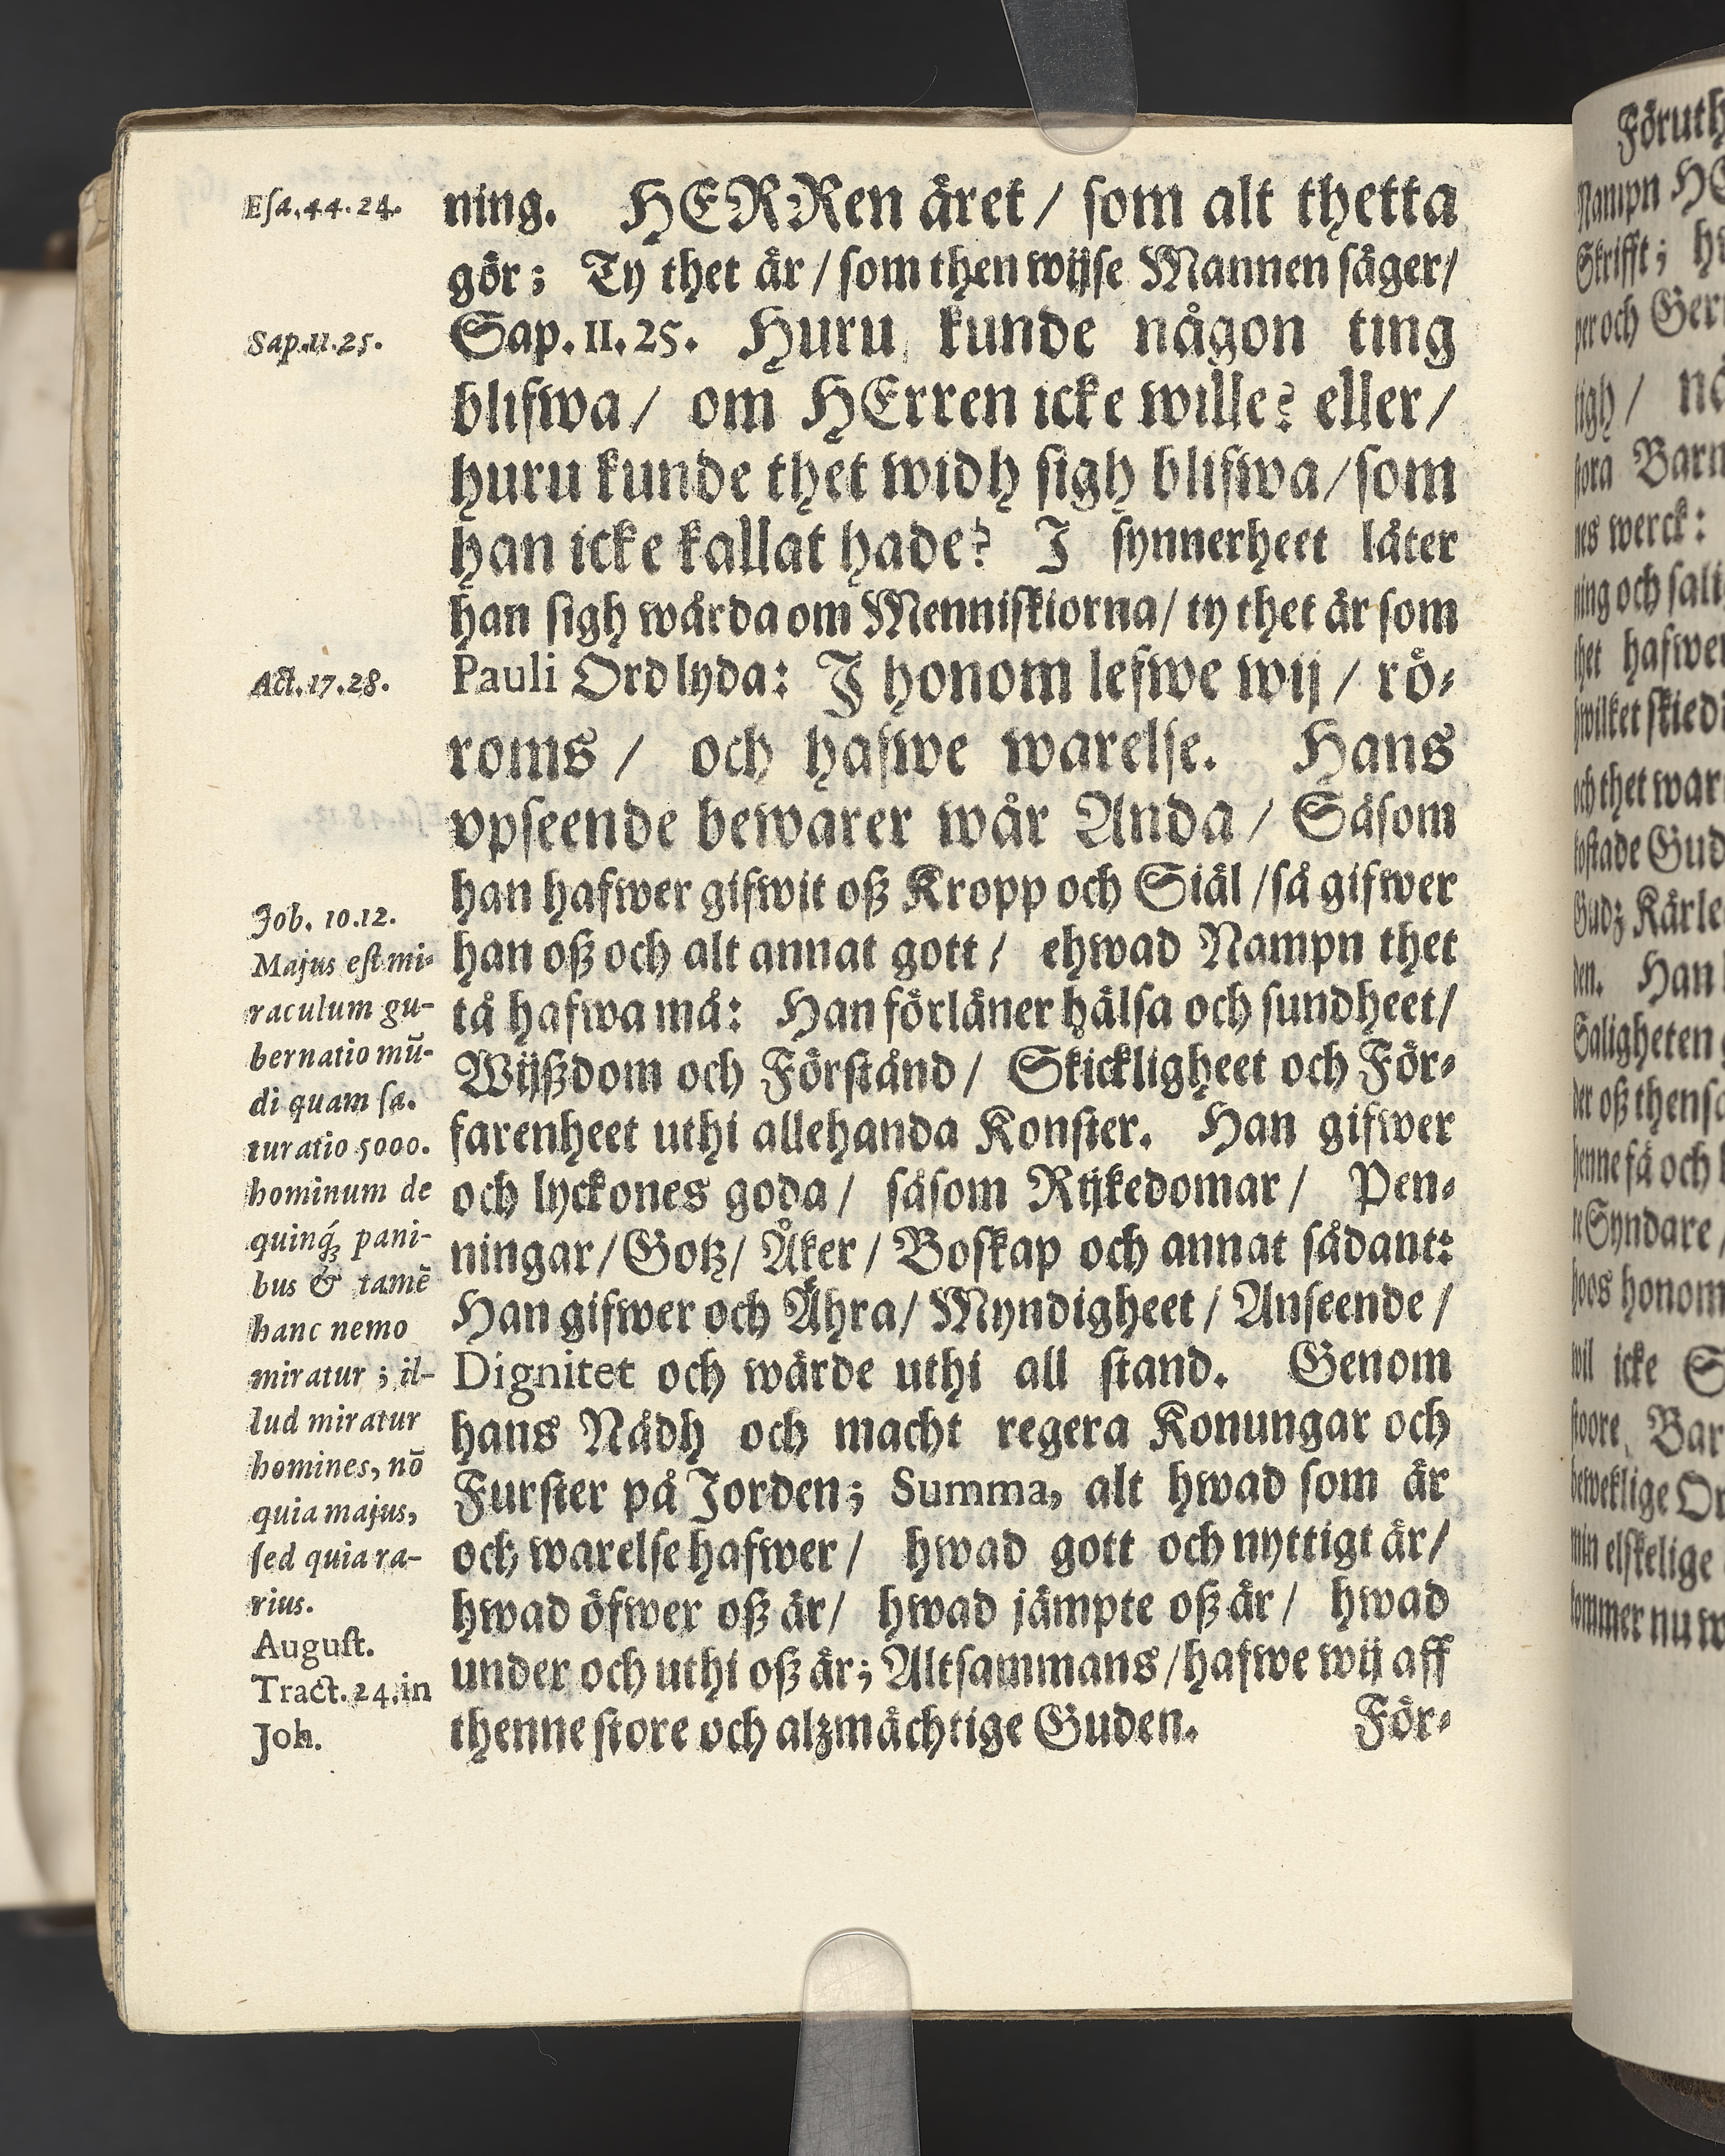 Esa.44.24.
ning. HERRen äret / som alt thetta
gör; Ty thet är / som then wijse Mannen säger/
Sap.11.25.
Sap. II. 25. Huru kunde någon ting
blifwa / om HErren icke wille? eller /
huru kunde thet widh sigh blifwa / som
han icke kallat hade? I synnerheet låter
han sigh wårda om Menniskiorna / ty thet är som
Act.17.28.
Pauli Ord lyda: I honom lefwe wij / rö-
roms / och hafwe warelse. Hans
vpseende bewarer wår Anda / Såsom
han hafwer gifwit oß Kropp och Siäl / så gifwer
han oß och alt annat gott / ehwad Nampn thet
tå hafwa må: Han förläner hälsa och sundheet /
Wijßdom och Förstånd / Skickligheet och För-
farenheet uthi allehanda Konster. Han gifwer
och lyckones goda / såsom Rijkedomar / Pen-
ningar / Gotz / Åker / Boskap och annat sådant:
Han gifwer och Ähra / Myndigheet / Anseende /
Dignitet och wärde uthi all stand. Genom
hans Nådh och macht regera Konungar och
Furster på Jorden; Summa, alt hwad som är
och warelse hafwer / hwad gott och nyttigt är /
hwad öfwer oß är / hwad jämpte oß är / hwad
under och uthi oß är; Altsammans / hafwe wij aff
thenne store och alzmächtige Guden.
För-
Job. 10.12.
Majus est mi-
raculum gu-
bernatio mū-
di quam sa-
turatio 5000.
hominum de
quinq́; pani-
bus & tamē
hanc nemo
miratur ; il-
lud miratur
homines, nō
quia majus,
sed quia ra-
rius.
August.
Tract. 24. in
Joh.
Föruth
Nampn HE
Skrifft; hw
per och Ger
sigh / nå
stora Barm
nes werck:
ning och sali
thet hafwer
hwilket skied
och thet war
kostade Gud
Gudz Kärle
den. Han
Saligheten
der oß thens
henne få och
re Syndare /
hoos honom
wil icke S
stoore, Bar
beweklige Or
min elskelige
kommer nu w